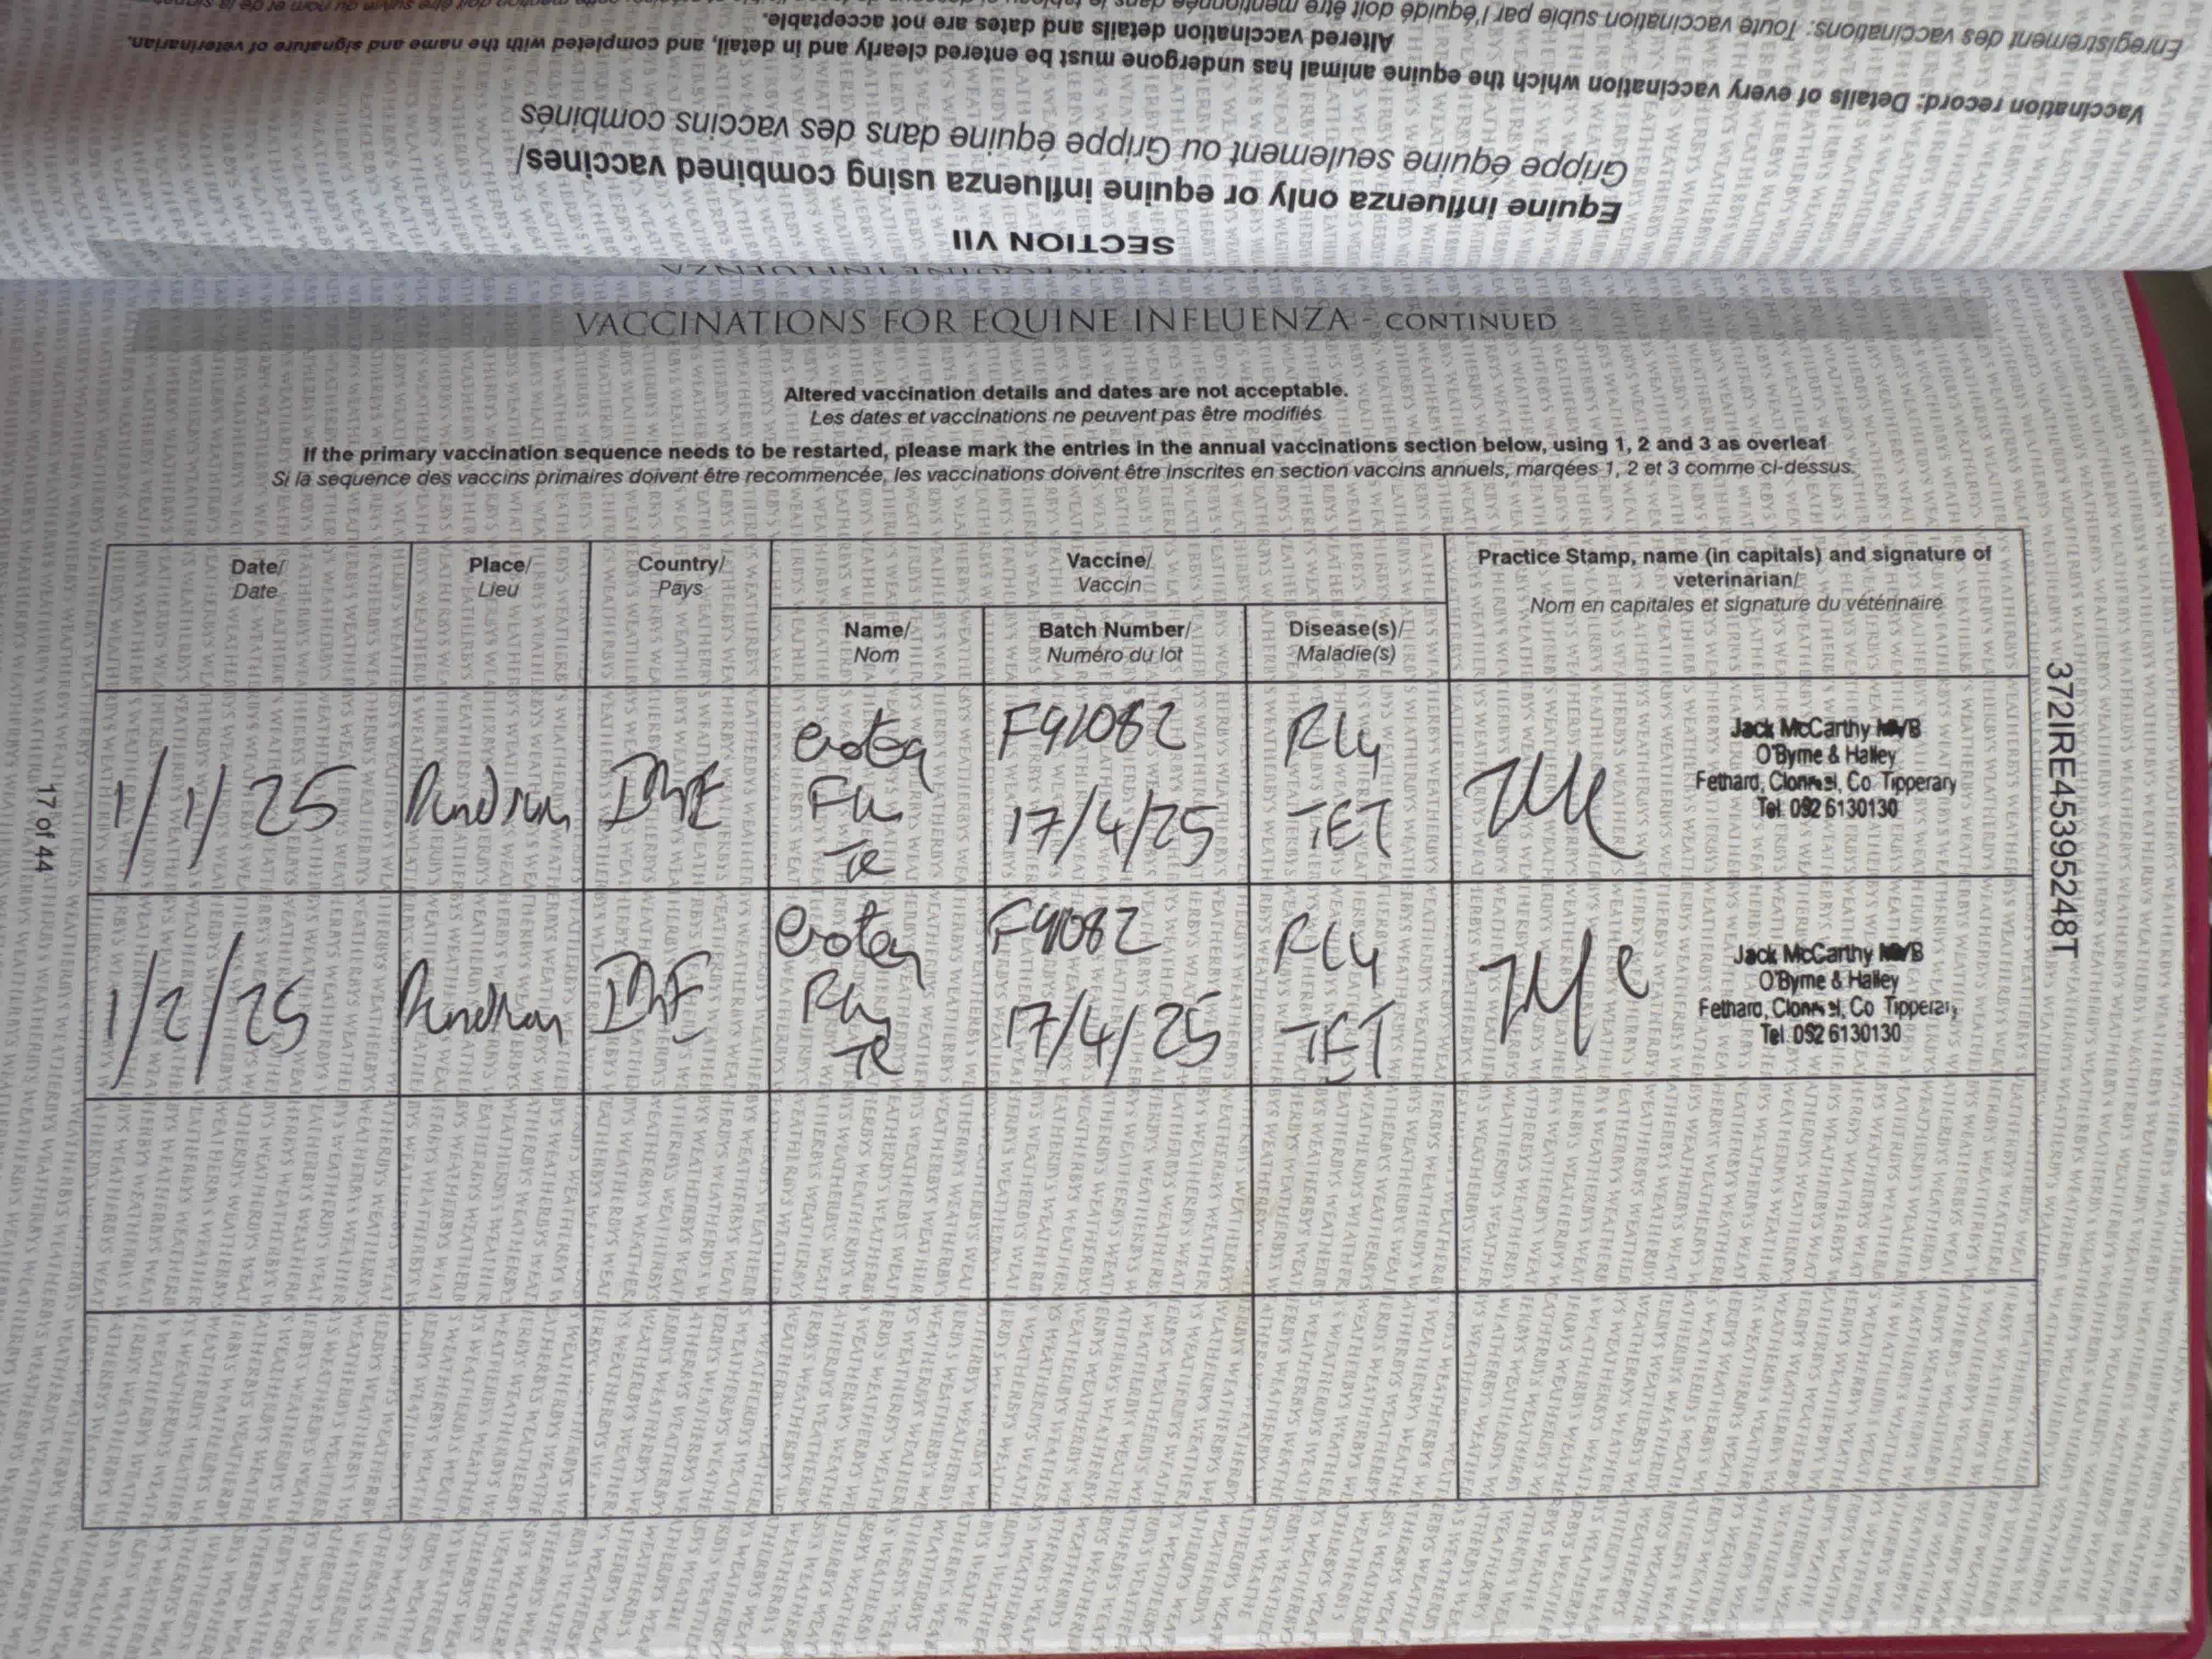 Enregistrement des vaccinations: Toute vaccination subie par l'équidé doit être mentionnée dans le
Altered vaccination details and dates are not acceptable.
Vaccination record: Details of every vaccination which the equine animal has undergone must be entered clearly and in detail, and completed with the name and signature of veterinarian.
Grippe équine seulement ou Grippe équine dans des vaccins combinés
Equine influenza only or equine influenza using combined vaccines/
SECTION VII
VACCINATIONS FOR EQUINE INFLUENZA - CONTINUED
Altered vaccination details and dates are not acceptable.
Les dates et vaccinations ne peuvent pas être modifiés
If the primary vaccination sequence needs to be restarted, please mark the entries in the annual vaccinations section below, using 1, 2 and 3 as overleaf
Si la sequence des vaccins primaires doivent être recommencée, les vaccinations doivent être inscrites en section vaccins annuels, marqées 1, 2 et 3 comme ci-dessus.
Date/
Date
Place/
Lieu
Country/
Pays
Vaccine/
Vaccin
Name/
Nom
Batch Number/
Numéro du lot
Disease(s)/
Maladie(s)
Practice Stamp, name (in capitals) and signature of
veterinarian/
Nom en capitales et signature du vétérinaire
1/1/25
F41082
17/4/25
Flu
TET
Jack McCarthy MVB
O'Byrne & Halley
Fethard, Clonmel, Co Tipperary
Tel 052 6130130
1/2/25
F41082
17/4/25
Flu
TET
Jack McCarthy MVB
O'Byrne & Halley
Fethard, Clonmel, Co Tipperary
Tel 052 6130130
372IRE45395248T
17 of 44